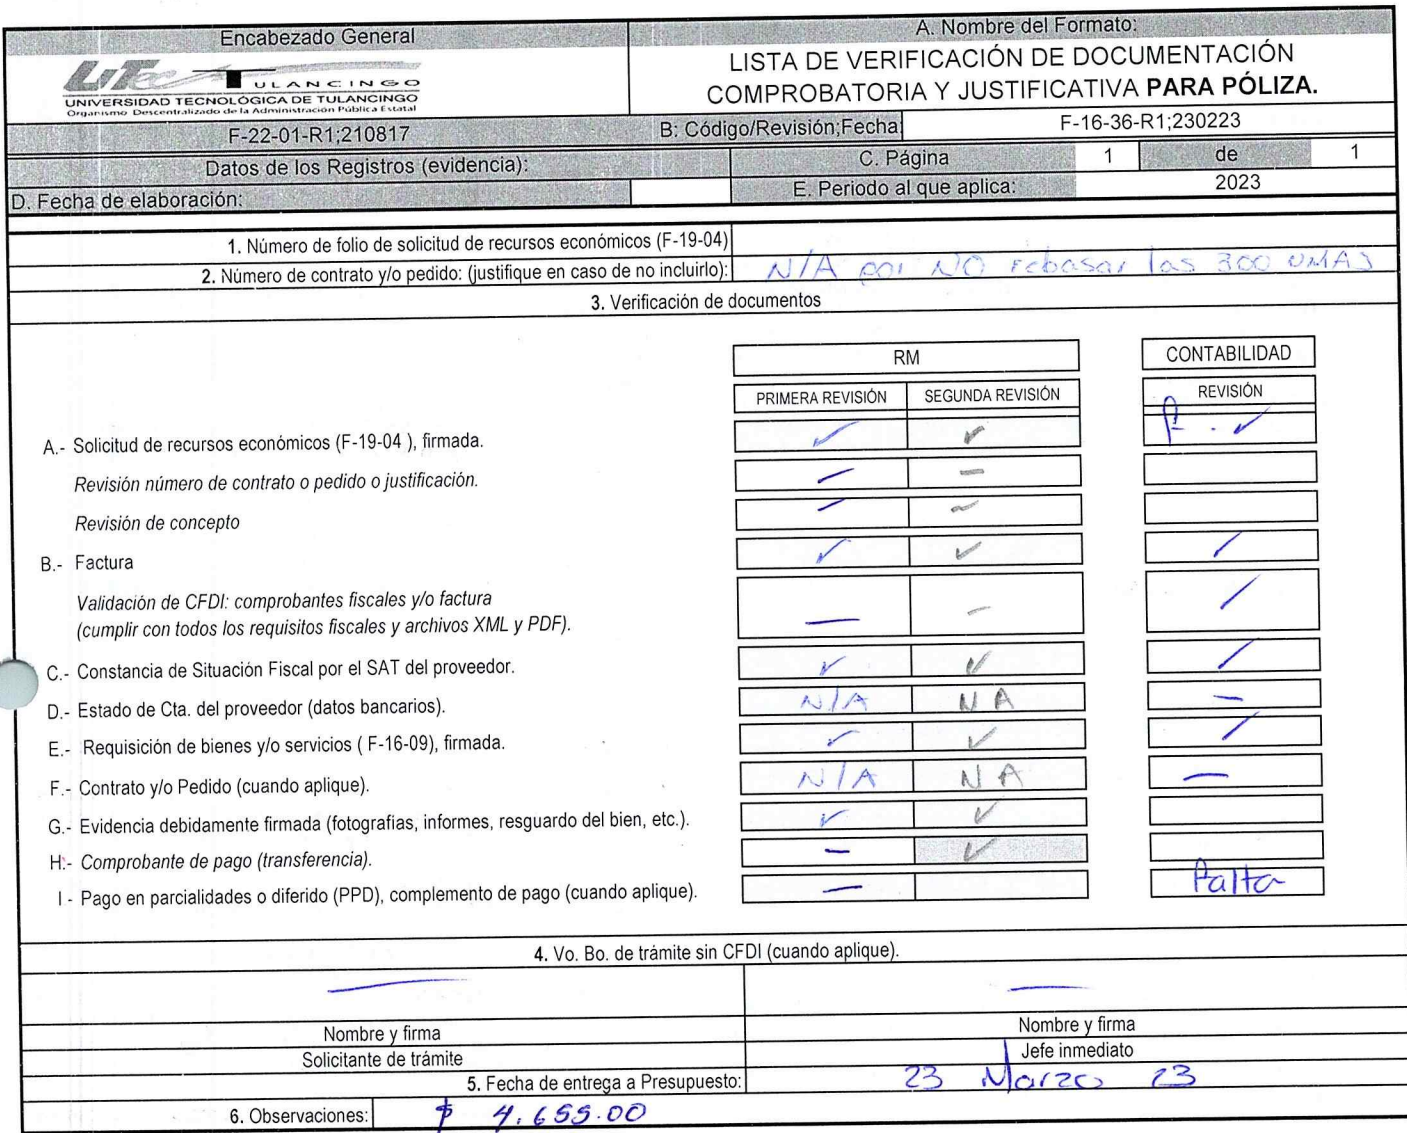 Encabezado General
A. Nombre del Formato:
TULANCINGO
UNIVERSIDAD TECNOLÓGICA DE TULANCINGO
Organismo Descentralizado de la Administración Pública Estatal
LISTA DE VERIFICACIÓN DE DOCUMENTACIÓN
COMPROBATORIA Y JUSTIFICATIVA PARA PÓLIZA.
F-22-01-R1;210817
B: Código/Revisión;Fecha
F-16-36-R1;230223
Datos de los Registros (evidencia):
C. Página 1 de 1
D. Fecha de elaboración:
E. Periodo al que aplica: 2023
1. Número de folio de solicitud de recursos económicos (F-19-04)
2. Número de contrato y/o pedido: (justifique en caso de no incluirlo): N/A por NO rebasar las 300 UMAS
3. Verificación de documentos
RM CONTABILIDAD
PRIMERA REVISIÓN SEGUNDA REVISIÓN REVISIÓN
A.- Solicitud de recursos económicos (F-19-04 ), firmada. ✓ ✓ ✓
Revisión número de contrato o pedido o justificación. — —
Revisión de concepto — —
B.- Factura ✓ ✓ /
Validación de CFDI: comprobantes fiscales y/o factura
(cumplir con todos los requisitos fiscales y archivos XML y PDF). — — /
C.- Constancia de Situación Fiscal por el SAT del proveedor. ✓ ✓ /
D.- Estado de Cta. del proveedor (datos bancarios). N/A NA —
E.- Requisición de bienes y/o servicios ( F-16-09), firmada. ✓ ✓ /
F.- Contrato y/o Pedido (cuando aplique). N/A NA —
G.- Evidencia debidamente firmada (fotografias, informes, resguardo del bien, etc.). ✓ ✓
H.- Comprobante de pago (transferencia). — ✓
I - Pago en parcialidades o diferido (PPD), complemento de pago (cuando aplique). — Falta
4. Vo. Bo. de trámite sin CFDI (cuando aplique).
Nombre y firma Nombre y firma
Solicitante de trámite Jefe inmediato
5. Fecha de entrega a Presupuesto: 23 Marzo 23
6. Observaciones: $ 4,655.00